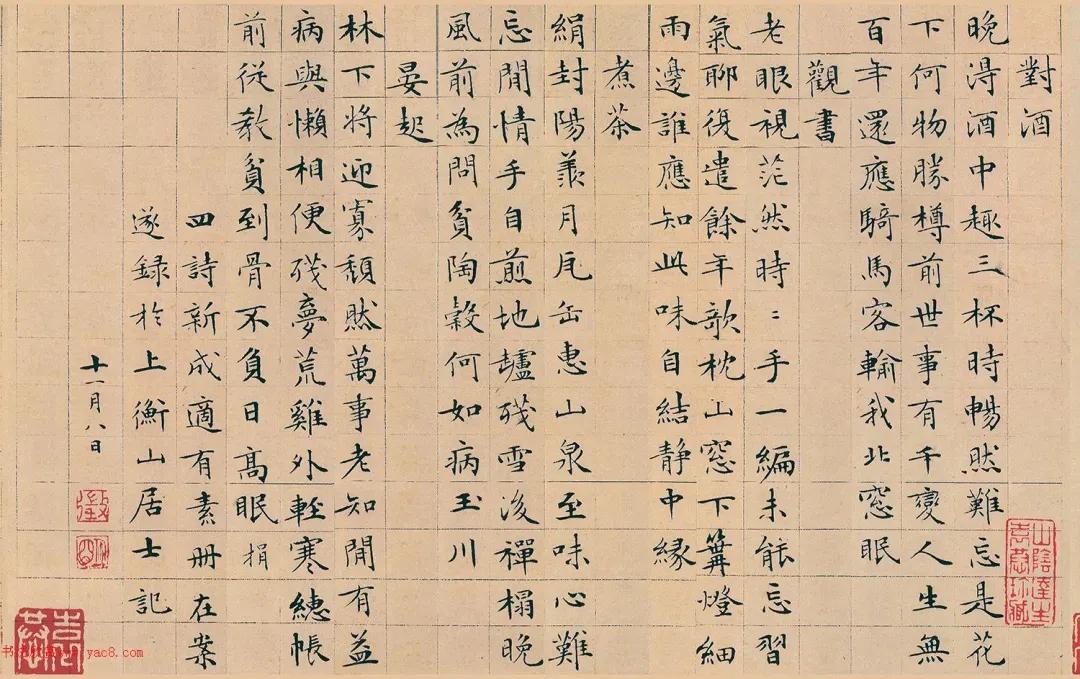 對酒
晚淂酒中趣三杯時暢然難忘是花
下何物勝樽前世事有千變人生無
百年還應騎馬客輸我北窓眠
觀書
老眼視茫然時〻手一編未能忘習
氣聊復遣餘年欹枕山窓下篝燈細
雨邊誰應知此味自結静中緣
煮茶
絹封陽羨月瓦缶惠山泉至味心難
忘閒情手自煎地壚殘雪後禪榻晚
風前為問貧陶穀何如病玉川
晏起
林下將迎寡頹然萬事老知閒有益
病與懶相便殘夢荒雞外輕寒繐帳
前從教貧到骨不負日高眠 捐
四詩新成適有素册在案
遂録於上衡山居士記
十一月八日
徵
明